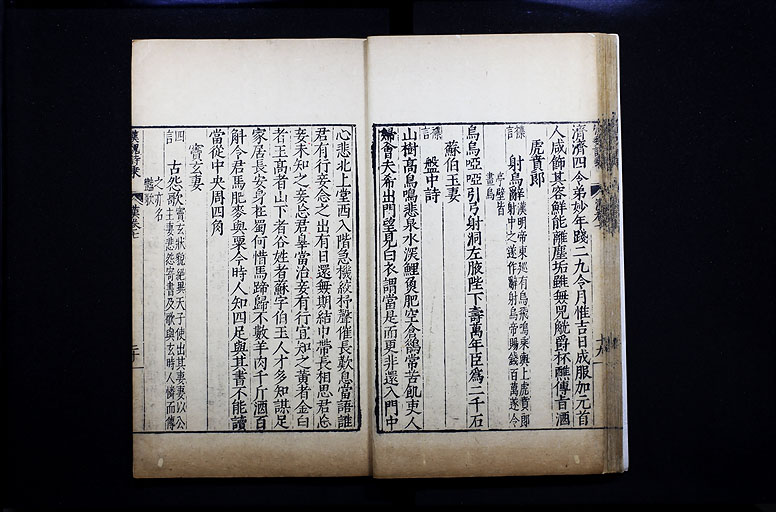 濟濟四令弟妙年踐二九令月惟吉日成服加元首
人咸飾其容鮮能離塵垢雖無兕觥爵杯醮傳旨酒
虎賁郎
雜言
射烏辭
漢明帝東巡有烏飛鳴乘輿上虎賁郎
射中之遂作辭射烏帝賜錢百萬遂令
亭壁皆
畫烏
烏烏啞啞引弓射洞左腋陛下壽萬年臣爲二千石
蘇伯玉妻
雜言
盤中詩
山樹高鳥鳴悲泉水深鯉魚肥空倉鵲常苦飢吏人
婦會夫希出門望見白衣謂當是而更非還入門中
心悲北上堂西入階急機絞杼聲催長歎息當語誰
君有行妾念之出有日還無期結巾帶長相思君忘
妾未知之妾忘君罪當治妾有行宜知之黃者金白
者玉高者山下者谷姓者蘇字伯玉人才多知謀足
家居長安身在蜀何惜馬蹄歸不數羊肉千斤酒百
斛令君馬肥麥與粟今時人知四足與其書不能讀
當從中央周四角
竇玄妻
四言
古怨歌
竇玄狀貌絕異天子使出其妻妻以公
主妻悲怨寄書及歌與玄時人憐而傳
之亦名
豔歌